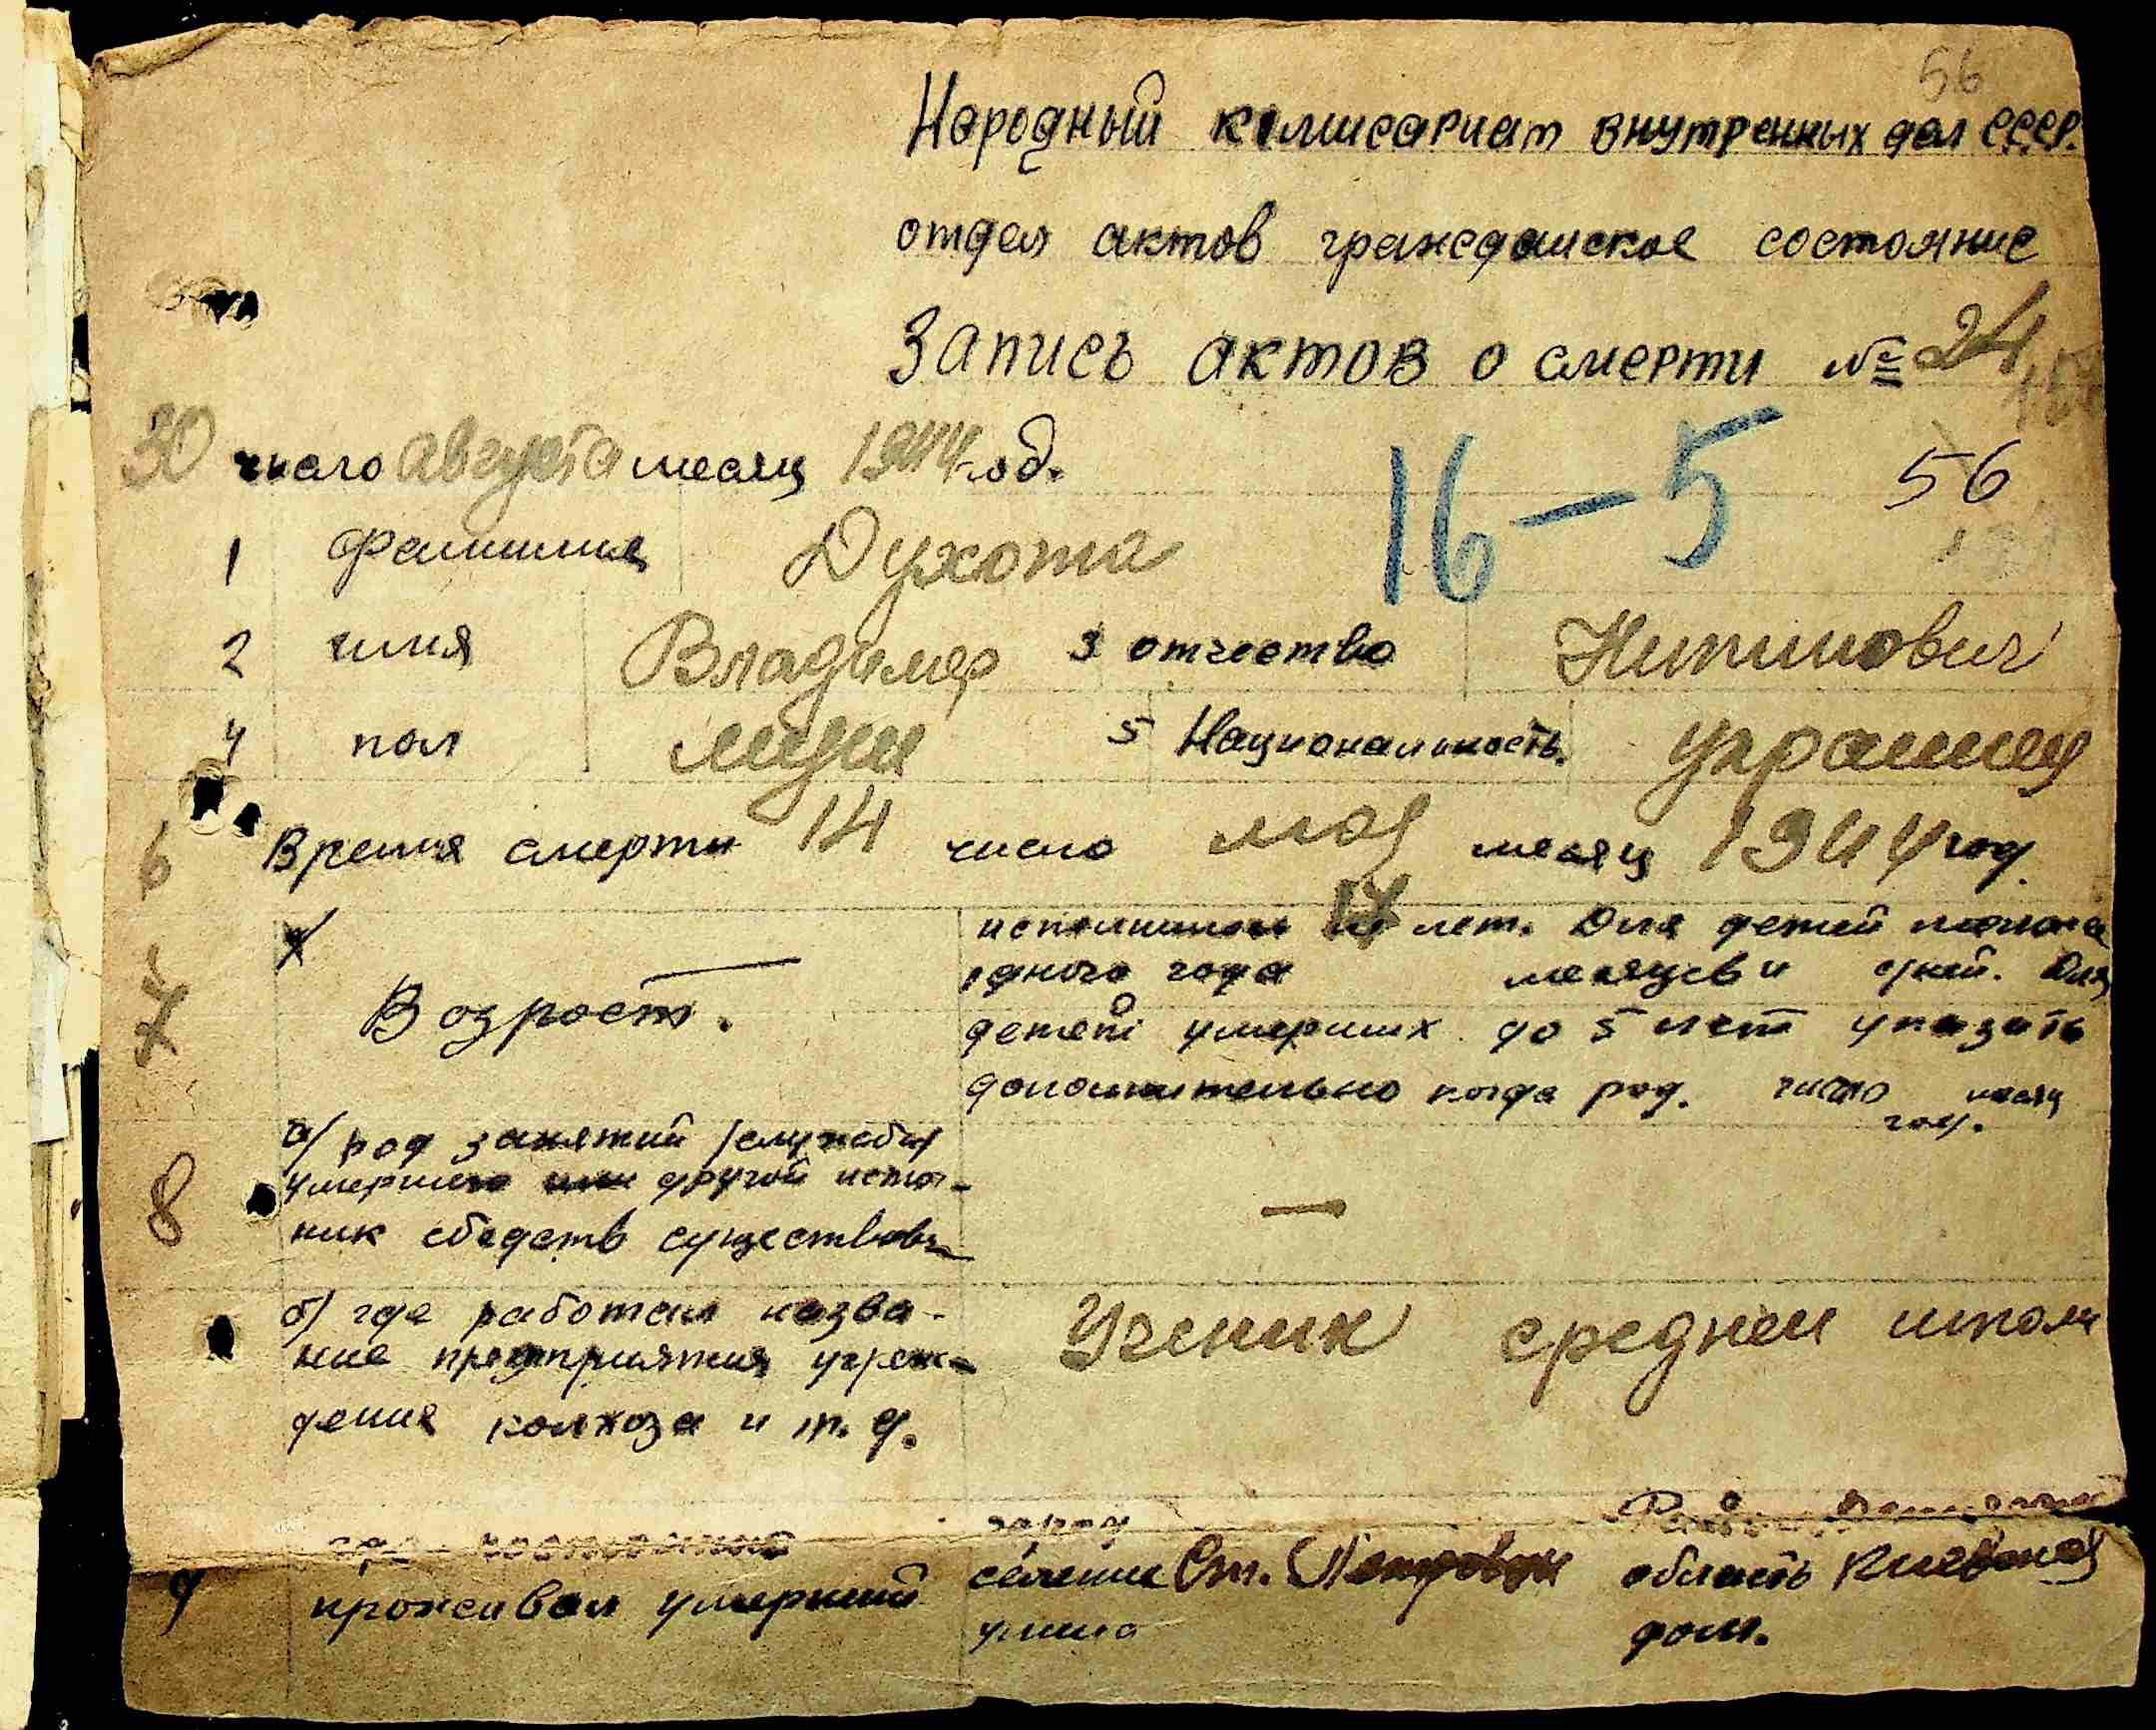 56
Народный комисариат внутренных дел СССР.
отдел актов гражданское состояние
Запись актов о смерти № 24
30 число августа месяц 1944 год.
16-5
56
1 фамилия Духота
2 имя Владимер 3 отчество
4 пол муж 5 Национальность. украинец
6 Время смерти 14 число мая месяц 1944 год.
исполнилось 17 лет. Для детей моложе
7 Возрост. одного года месяцев и дней. Для
детей умерших до 5 лет указать
дополнительно когда род. число месяц
год.
8 а) род занятий (службы)
умершего или другой источ-
ник сбедств существова
—
б) где работал назва-
ние предприятия учреж-
дения колхоза и т. д.
Ученик средней школи
где постоянно город Район
9 проживал умерший селение Ст. Петровци область Киевская
улица дом.